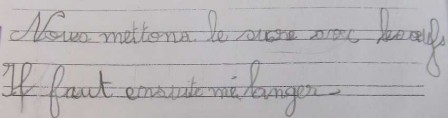 Nous mettons le sucre avec les oeufs
Il faut ensuite mélanger.